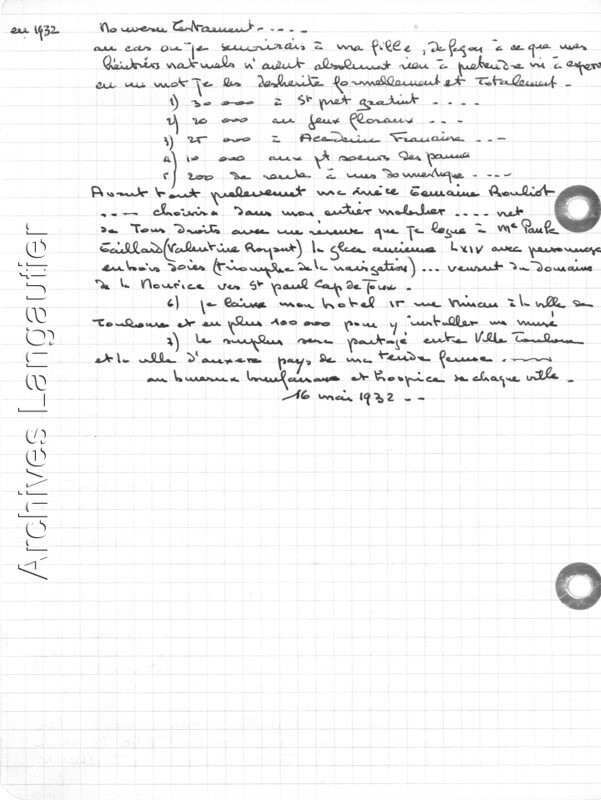 en 1932 Nouveau Testament .....
au cas où je survivrais à ma fille, de façon à ce que mes
héritiers naturels n'aient absolument rien à prétendre ni à
en un mot je les desherite formellement et Totalement.
1) 30 000 à St prêt gratuit ....
2) 20 000 au Jeux floraux ...
3) 25 000 à Academie Française ...
4) 10 000 aux pt soeurs des pauvres
5) 200 de rente à mes domestique ....
Avant tout prelevement ma nièce Germaine Rouliot
.... choisira dans mon entier mobilier .... net
de Tous droits avec une réserve que je lègue à Me Paule
Gaillard (Valentine Royant) la glace ancienne LXIV avec personnages
en bois dorés (triomphe de la navigation) ... venant du domaine
de la Mourice vers St paul Cap de Joux.
6) je laisse mon hotel 15 rue Ninau à la ville de
Toulouse et en plus 100 000 pour y installer un musé
7) le surplus sera partagé entre Ville Toulouse
et la ville d'auxerre pays de ma tendre femme .....
au bureaux bienfaisance et hospice de chaque ville.
16 mai 1932 --
Archives Langautier